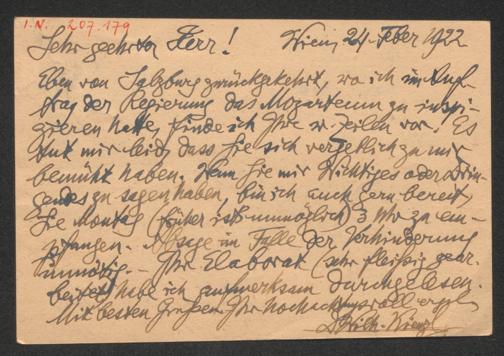 I.N. 207.179
Sehr geehrter Herr! Wien, 24. Feber 1922
Eben von Salzburg zurückgekehrt, wo ich im Auf-
trag der Regierung das Mozarteum zu inspi-
zieren hatte, finde ich Ihre w. Zeilen vor! Es
tut mir leid, dass Sie sich vergeblich zu mir
bemüht haben. Wenn Sie mir Wichtiges oder Drin-
gendes zu sagen haben, bin ich auch gern bereit,
Sie Montag (früher ist's unmöglich) 3 Uhr zu em-
pfangen. Absage im Falle der Verhinderung
unnötig. – Ihr Elaborat (sehr fleißig gear-
beitet) habe ich aufmerksam durchgelesen.
Mit besten Grüßen Ihr hochachtungsvoll ergb.
Dr Wilh. Kienzl